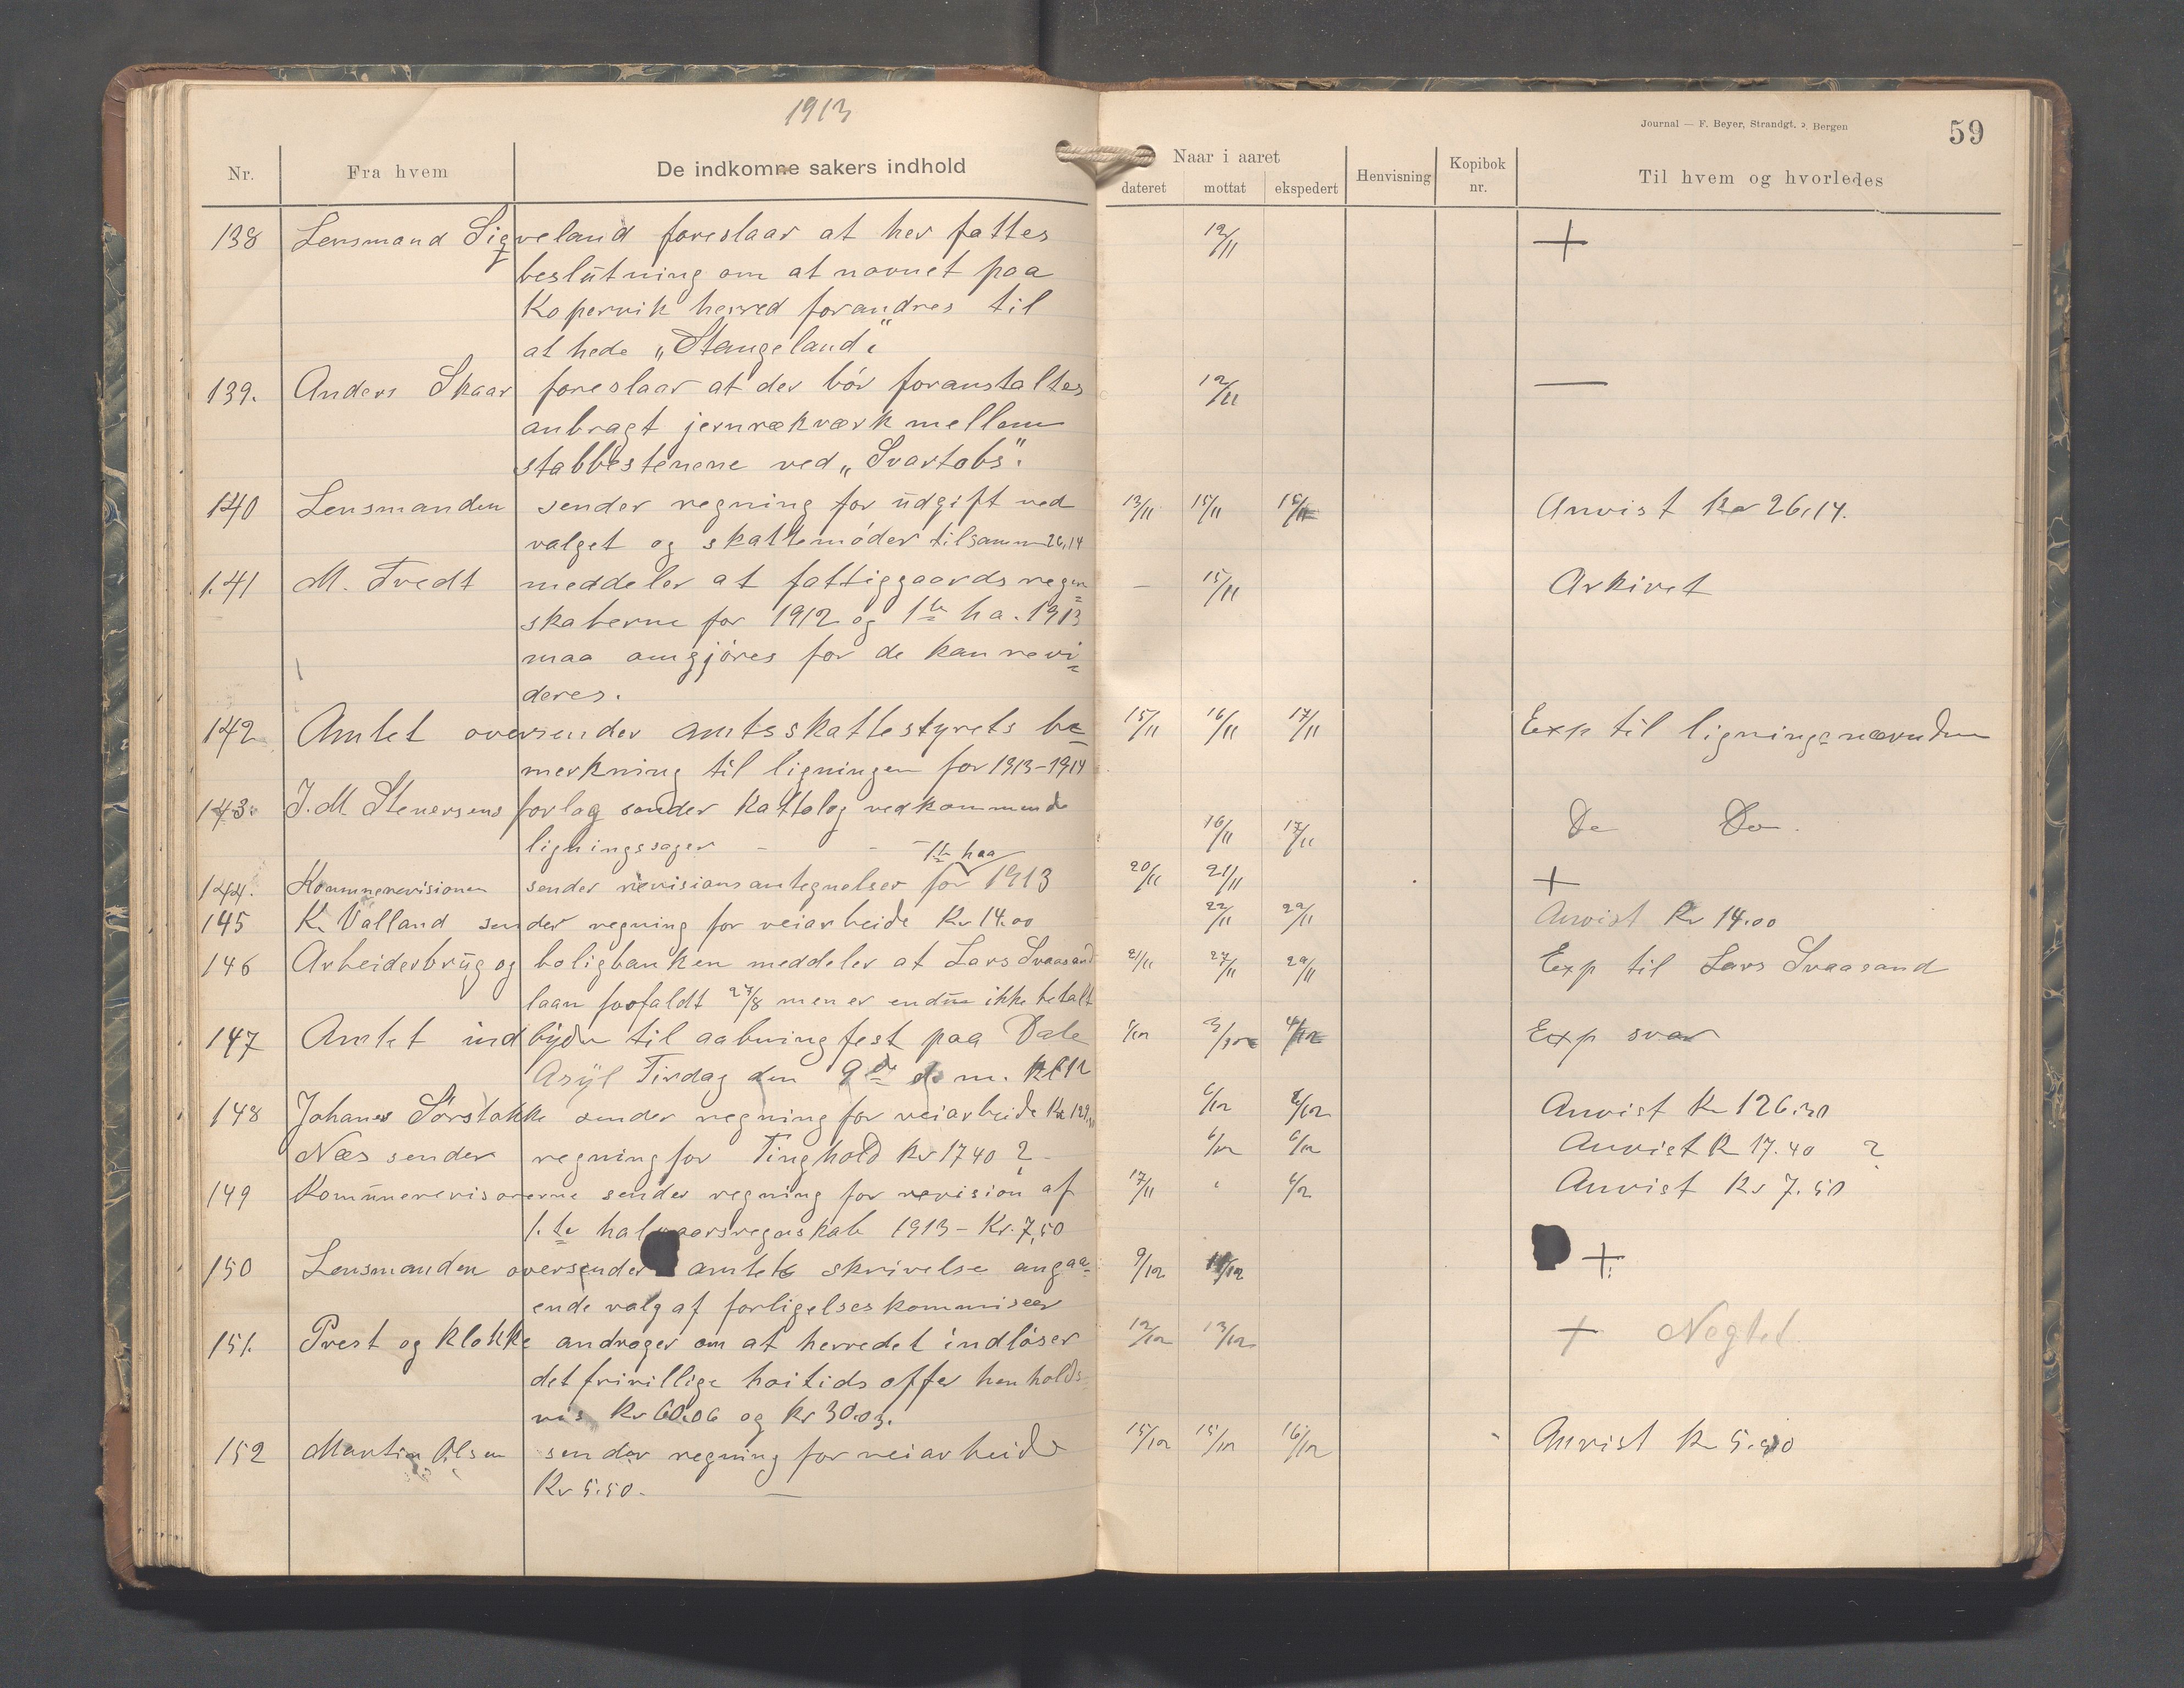 1913
Journal — F. Beyer, Strandgt. 2, Bergen
59
Nr. Fra hvem De indkomne sakers indhold Naar i aaret dateret mottat ekspedert Henvisning Kopibok nr. Til hvem og hvorledes
138 Lensmand Sigveland foreslaar at her fattes 12/11 +
beslutning om at navnet paa
Kopervik herred forandres til
at hede „Stangeland"
139. Anders Skaar foreslaar at der bør foranstaltes 12/11 —
anbragt jernrækværk mellem
stabbestenene ved „Svartabs".
140 Lensmanden sender regning for udgift ved 13/11 15/11 15/11 Anvist Kr 26,14.
valget og skattemøder tilsamm 26,14
141 M. Tvedt meddeler at fattiggaards regn= — 15/11 Arkivet
skaberne for 1912 og 1te ha. 1913
maa omgjøres før de kan revi=
deres.
142 Amtet oversender amtsskattestyrets be= 15/11 16/11 17/11 Exp til ligningsnævnden
merkning til ligningen for 1913-1914
143. J. M Stenersens forlag sender Kattalog vedkommende
ligningssager - - 16/11 17/11 Do Do.
1te haa
144. Kommunerevisionen sender revisions antegnelser for 1913 20/11 21/11 +
145 K. Valland sender regning for veiarbeide Kr 14.00 22/11 22/11 Anvist Kr 14.00
146 Arbeiderbrug og boligbanken meddeler at Lars Svaasand 21/11 27/11 29/11 Exp til Lars Svaasand
laan forfaldt 27/8 men er endnu ikke betalt
147 Amtet indbyder til aabningfest paa Dale 1/12 3/12 4/12 Exp svar
Asyl Tirdag den 9de d. m. Kl 12
148 Johanes Sørstokke sender regning for veiarbeide Kr 6/12 6/12 Anvist Kr 126.30
Næs sender regning for Tinghold Kr 17 40 ? - 6/12 6/12 Anvist Kr 17.40 ?
149 Komunerevisorerne sender regning for revision af 17/11 " 6/12 Anvist Kr 7.50
1.te halvaarsregnskab 1913 - Kr. 7,50
150 Lensmanden oversender amtets skrivelse angaa= 9/12 /12 +
ende valg af forligelseskommiseer
151. Prest og klokke androger om at herredet indløser 12/12 13/12 + Negtet.
det frivillige høitids offer henholds=
vis Kr 60.06 og Kr 30.03.
152 Martin Olsen sender regning for veiarbeide 15/12 15/12 16/12 Anvist Kr 5.50
Kr 5.50. —